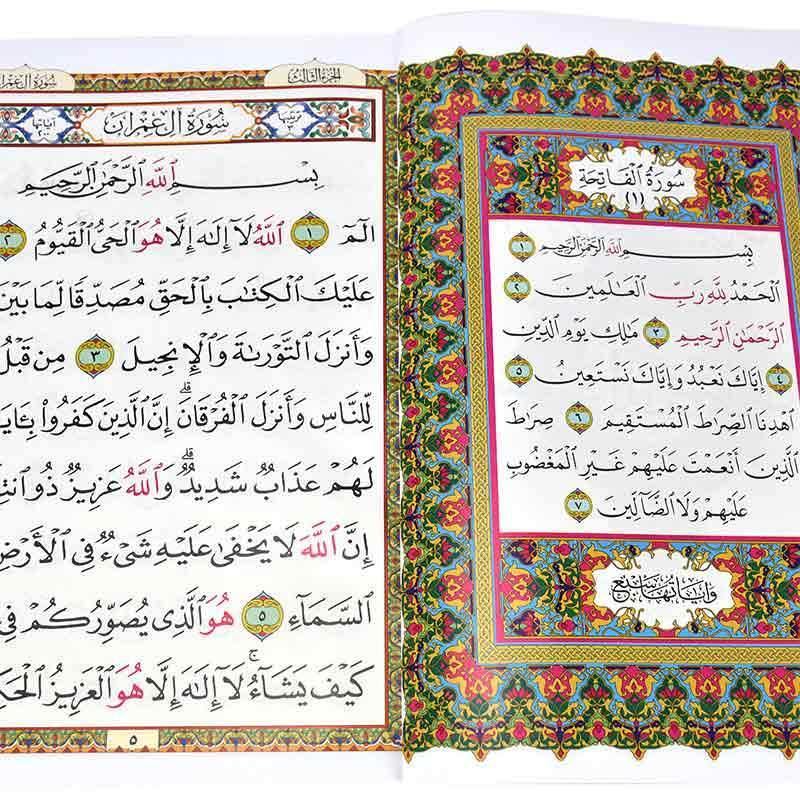 سُورَةُ الْفَاتِحَةِ
(١)
بِسْمِ ٱللَّهِ ٱلرَّحْمَٰنِ ٱلرَّحِيمِ ١
ٱلْحَمْدُ لِلَّهِ رَبِّ ٱلْعَٰلَمِينَ ٢
ٱلرَّحْمَٰنِ ٱلرَّحِيمِ ٣ مَٰلِكِ يَوْمِ ٱلدِّينِ
٤ إِيَّاكَ نَعْبُدُ وَإِيَّاكَ نَسْتَعِينُ ٥
ٱهْدِنَا ٱلصِّرَٰطَ ٱلْمُسْتَقِيمَ ٦ صِرَٰطَ
ٱلَّذِينَ أَنْعَمْتَ عَلَيْهِمْ غَيْرِ ٱلْمَغْضُوبِ
عَلَيْهِمْ وَلَا ٱلضَّآلِّينَ ٧
وَآيَاتُهَا سَبْعٌ
الجزء الثالث
سُورَةُ آلِ عِمْرَان
ترتيبها ٣ سُورَةُ آلِ عِمْرَان آياتها ٢٠٠
بِسْمِ ٱللَّهِ ٱلرَّحْمَٰنِ ٱلرَّحِيمِ
الٓمٓ ١ ٱللَّهُ لَآ إِلَٰهَ إِلَّا هُوَ ٱلْحَىُّ ٱلْقَيُّومُ ٢
عَلَيْكَ ٱلْكِتَٰبَ بِٱلْحَقِّ مُصَدِّقًا لِّمَا بَيْنَ
وَأَنزَلَ ٱلتَّوْرَىٰةَ وَٱلْإِنجِيلَ ٣ مِن قَبْلُ
لِّلنَّاسِ وَأَنزَلَ ٱلْفُرْقَانَ ۗ إِنَّ ٱلَّذِينَ كَفَرُوا۟
لَهُمْ عَذَابٌ شَدِيدٌ ۗ وَٱللَّهُ عَزِيزٌ ذُو
إِنَّ ٱللَّهَ لَا يَخْفَىٰ عَلَيْهِ شَىْءٌ فِى ٱلْأَرْضِ
ٱلسَّمَآءِ ٥ هُوَ ٱلَّذِى يُصَوِّرُكُمْ فِى
كَيْفَ يَشَآءُ ۚ لَآ إِلَٰهَ إِلَّا هُوَ ٱلْعَزِيزُ
٥